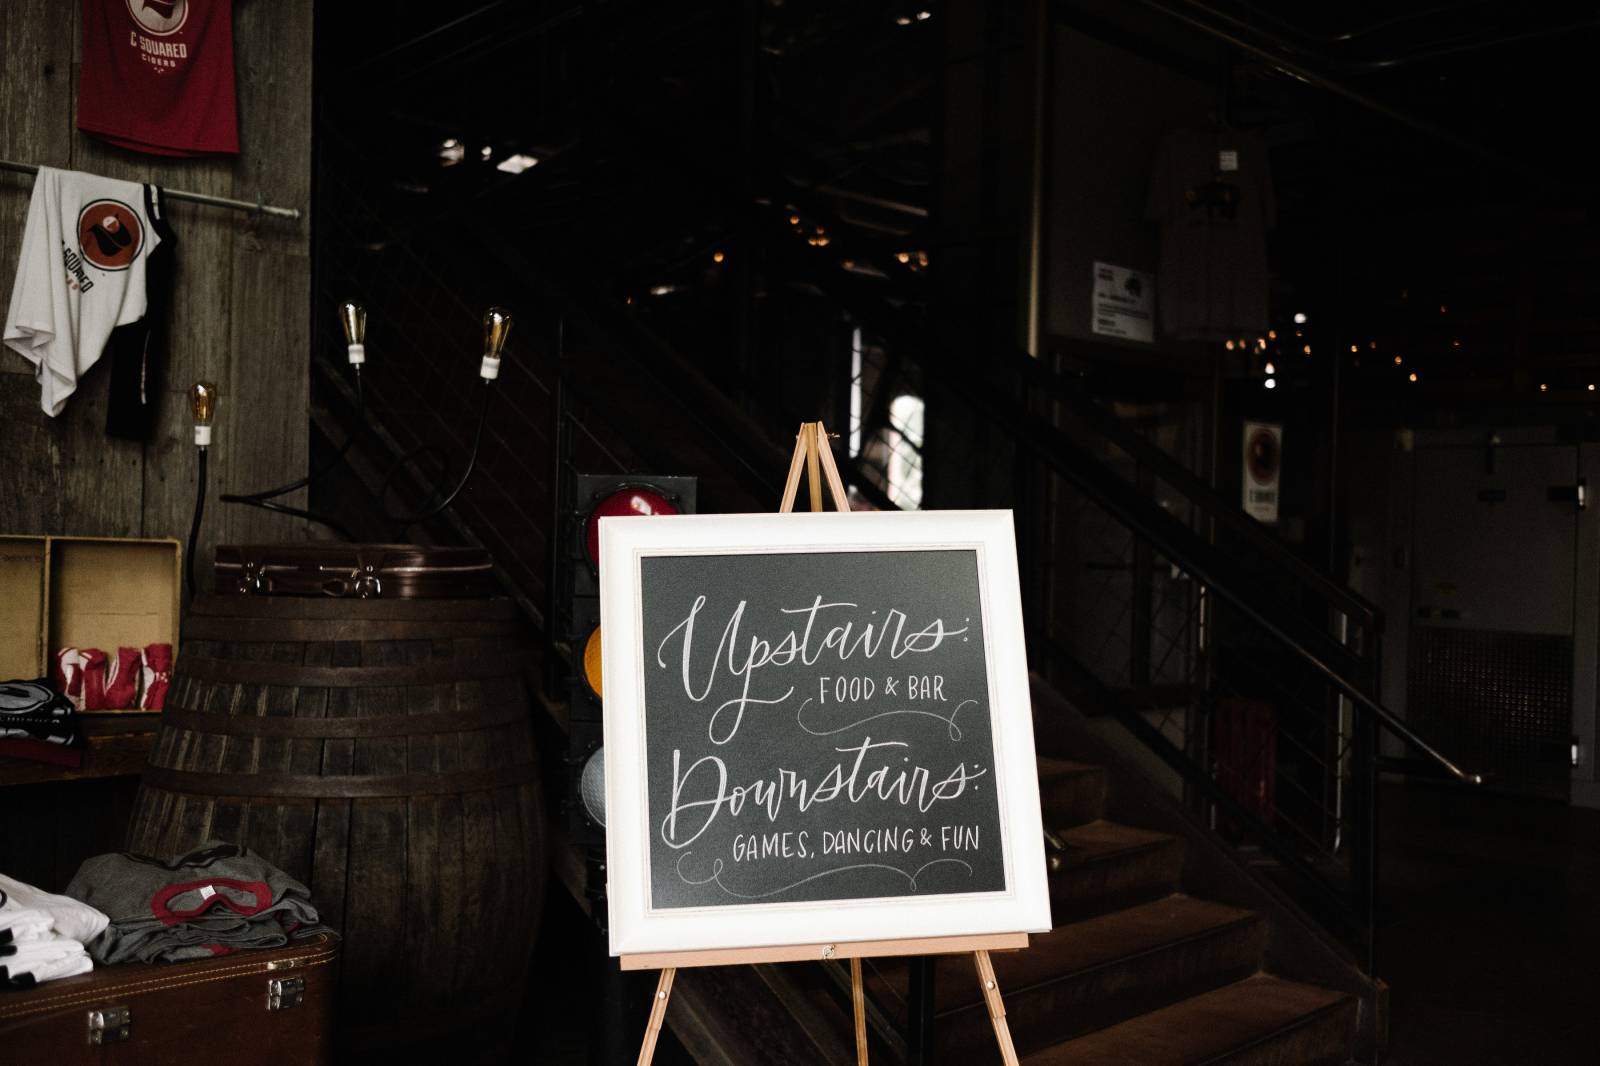 C SQUARED
CIDERS
SQUARED
Upstairs:
FOOD & BAR
Downstairs:
GAMES, DANCING & FUN